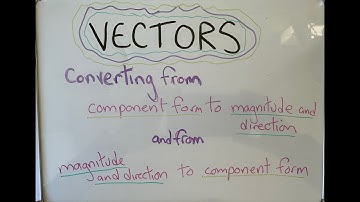 VECTORS
Converting from
component form to magnitude and
direction
and from
magnitude
and direction to component form